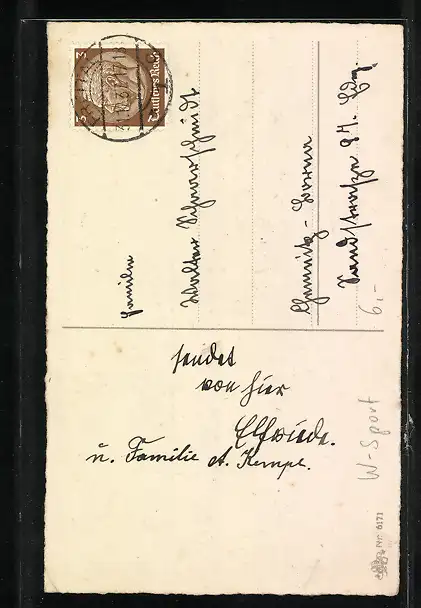 3
Deutsches Reich
3
Familie
Walter Scharschmidt
Chemnitz - Borna
Sandstraße 94. Edg.
sendet
von hier
Elfriede.
u. Familie A. Kempe.
6,-
W-Sport
Nr. 6171